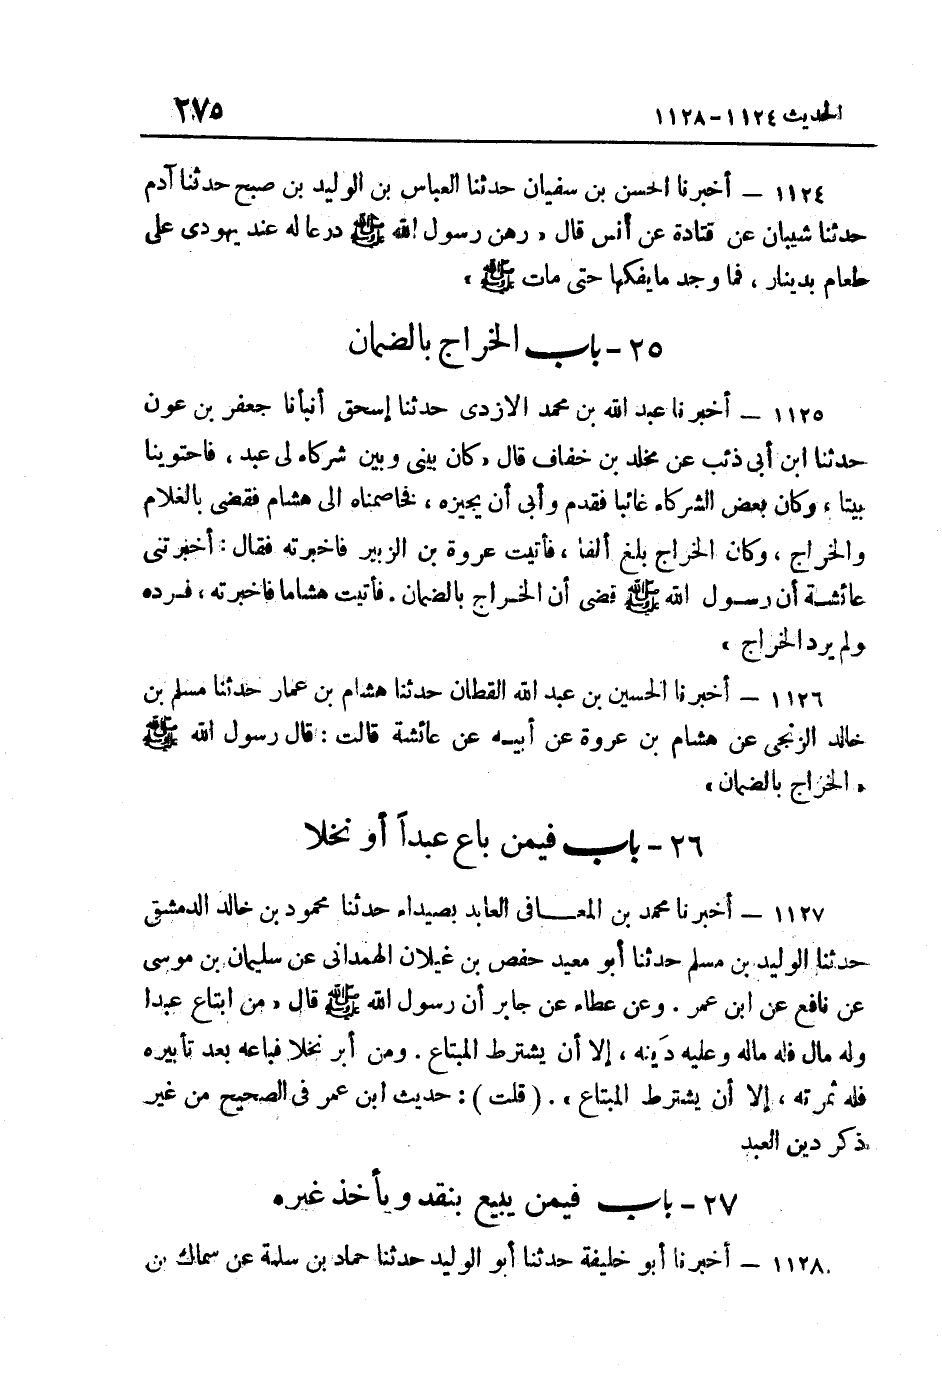 الحديث ١١٢٤-١١٢٨ ٢٧٥
١١٢٤ — أخبرنا الحسن بن سفيان حدثنا العباس بن الوليد بن صبح حدثنا آدم
حدثنا شيبان عن قتادة عن أنس قال « رهن رسول الله ﷺ درعا له عند يهودى على
طعام بدينار ، فما وجد ما يفكها حتى مات ﷺ »
٢٥ - باب الخراج بالضمان
١١٢٥ — أخبرنا عبد الله بن محمد الازدى حدثنا إسحق أنبأنا جعفر بن عون
حدثنا ابن أبى ذئب عن مخلد بن خفاف قال « كان بينى وبين شركاء لى عبد ، فاحتوينا
بيتا ، وكان بعض الشركاء غائبا فقدم وأبى أن يجيزه ، فخاصمناه الى هشام فقضى بالغلام
والخراج ، وكان الخراج بلغ ألفا ، فأتيت عروة بن الزبير فاخبرته فقال : أخبرتنى
عائشة أن رسول الله ﷺ قضى أن الخراج بالضمان . فأتيت هشاما فاخبرته ، فرده
ولم يرد الخراج »
١١٢٦ — أخبرنا الحسين بن عبد الله القطان حدثنا هشام بن عمار حدثنا مسلم بن
خالد الزنجى عن هشام بن عروة عن أبيه عن عائشة قالت : قال رسول الله ﷺ
« الخراج بالضمان »
٢٦ - باب فيمن باع عبداً أو نخلا
١١٢٧ — أخبرنا محمد بن المعافى العابد بصيداء حدثنا محمود بن خالد الدمشقى
حدثنا الوليد بن مسلم حدثنا أبو معيد حفص بن غيلان الهمدانى عن سليمان بن موسى
عن نافع عن ابن عمر . وعن عطاء عن جابر أن رسول الله ﷺ قال « من ابتاع عبدا
وله مال فله ماله وعليه دَينه ، إلا أن يشترط المبتاع . ومن أبر نخلا فباعه بعد تأبيره
فله ثمرته ، إلا أن يشترط المبتاع » . ( قلت ) : حديث ابن عمر فى الصحيح من غير
ذكر دين العبد
٢٧ - باب فيمن يبيع بنقد ويأخذ غيره
١١٢٨ — أخبرنا أبو خليفة حدثنا أبو الوليد حدثنا حماد بن سلمة عن سماك بن